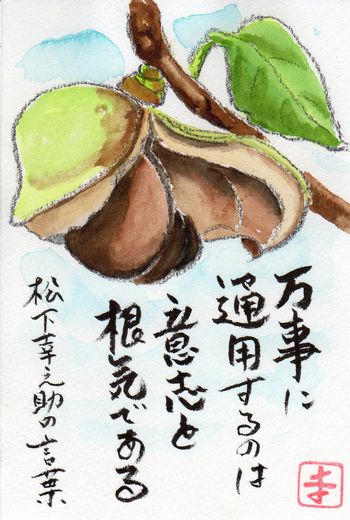 万事に
通用するのは
意志と
根気である
松下幸之助の言葉